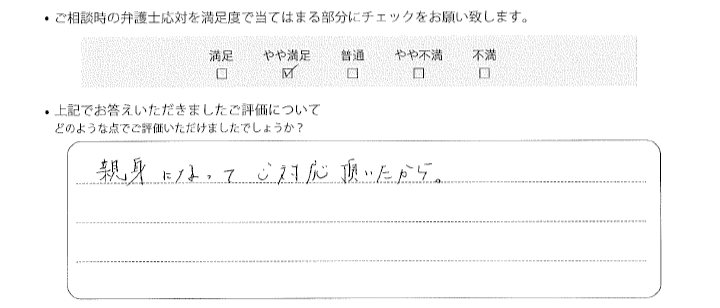 ・ご相談時の弁護士応対を満足度で当てはまる部分にチェックをお願い致します。
満足 やや満足 普通 やや不満 不満
□ ☑ □ □ □
・上記でお答えいただきましたご評価について
どのような点でご評価いただけましたでしょうか？
親身になって ご対応頂いたから。